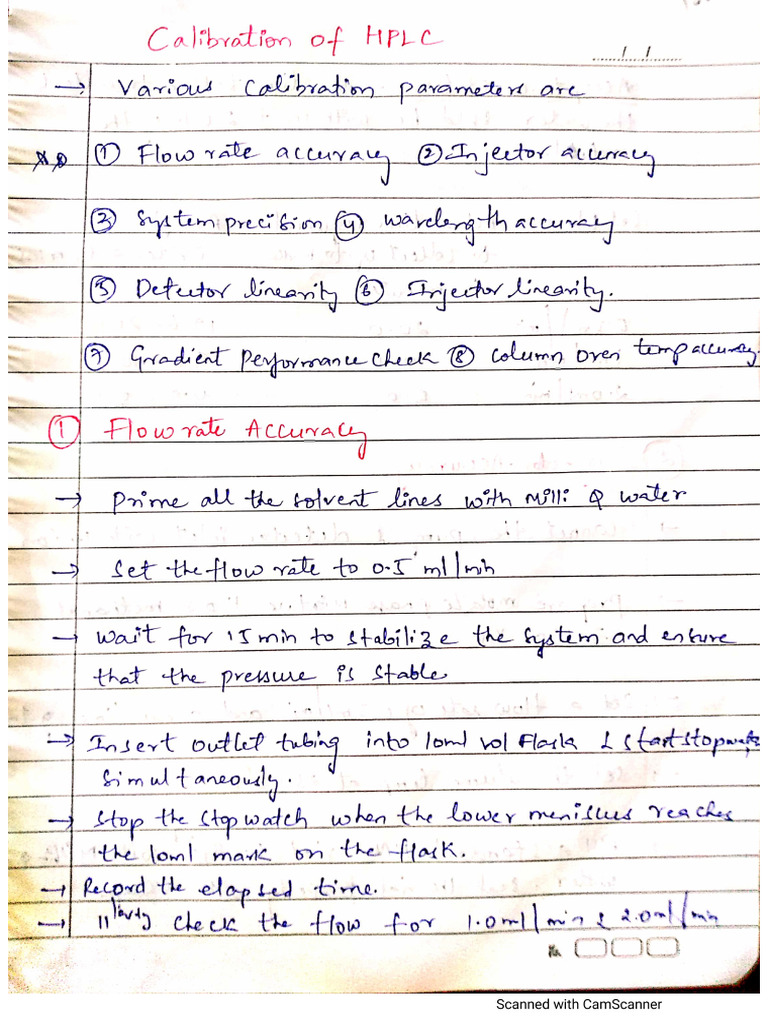 Calibration of HPLC
../../..
→ Various Calibration parameters are
① Flow rate accuracy ② Injector accuracy
③ System precision ④ wavelength accuracy
⑤ Detector linearity ⑥ Injector linearity.
⑦ Gradient Performance check ⑧ column oven temp accuracy.
① Flow rate Accuracy
→ Prime all the solvent lines with Milli Q water
→ Set the flow rate to 0.5 ml/min
→ Wait for 15 min to stabilize the system and ensure
that the pressure is stable.
→ Insert outlet tubing into 10ml vol Flask & start stopwatch
simultaneously.
→ Stop the stopwatch when the lower meniscus reaches
the 10ml mark on the flask.
→ Record the elapsed time.
→ 11larly check the flow for 1.0ml/min & 2.0ml/min
Scanned with CamScanner